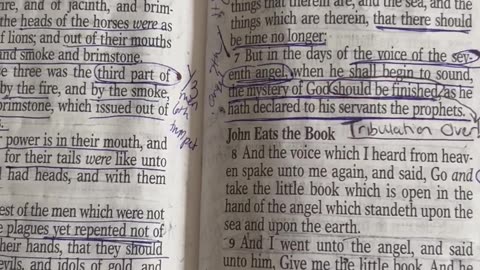 are, and of jacinth, and brim-
the heads of the horses were as
of lions; and out of their mouths
and smoke and brimstone.
se three was the third part of
by the fire, and by the smoke,
brimstone, which issued out of
power is in their mouth, and
for their tails were like unto
had heads, and with them
est of the men which were not
plagues yet repented not of
their hands, that they should
devils, and idols of gold, and
1/3
things that therein are, and the sea, and the
things which are therein, that there should
be time no longer:
7 But in the days of the voice of the sev-
enth angel, when he shall begin to sound,
the mystery of God should be finished, as he
hath declared to his servants the prophets.
John Eats the Book Tribulation Over!
8 And the voice which I heard from heav-
en spake unto me again, and said, Go and
take the little book which is open in the
hand of the angel which standeth upon the
sea and upon the earth.
9 And I went unto the angel, and said
unto him, Give me the little book. And he